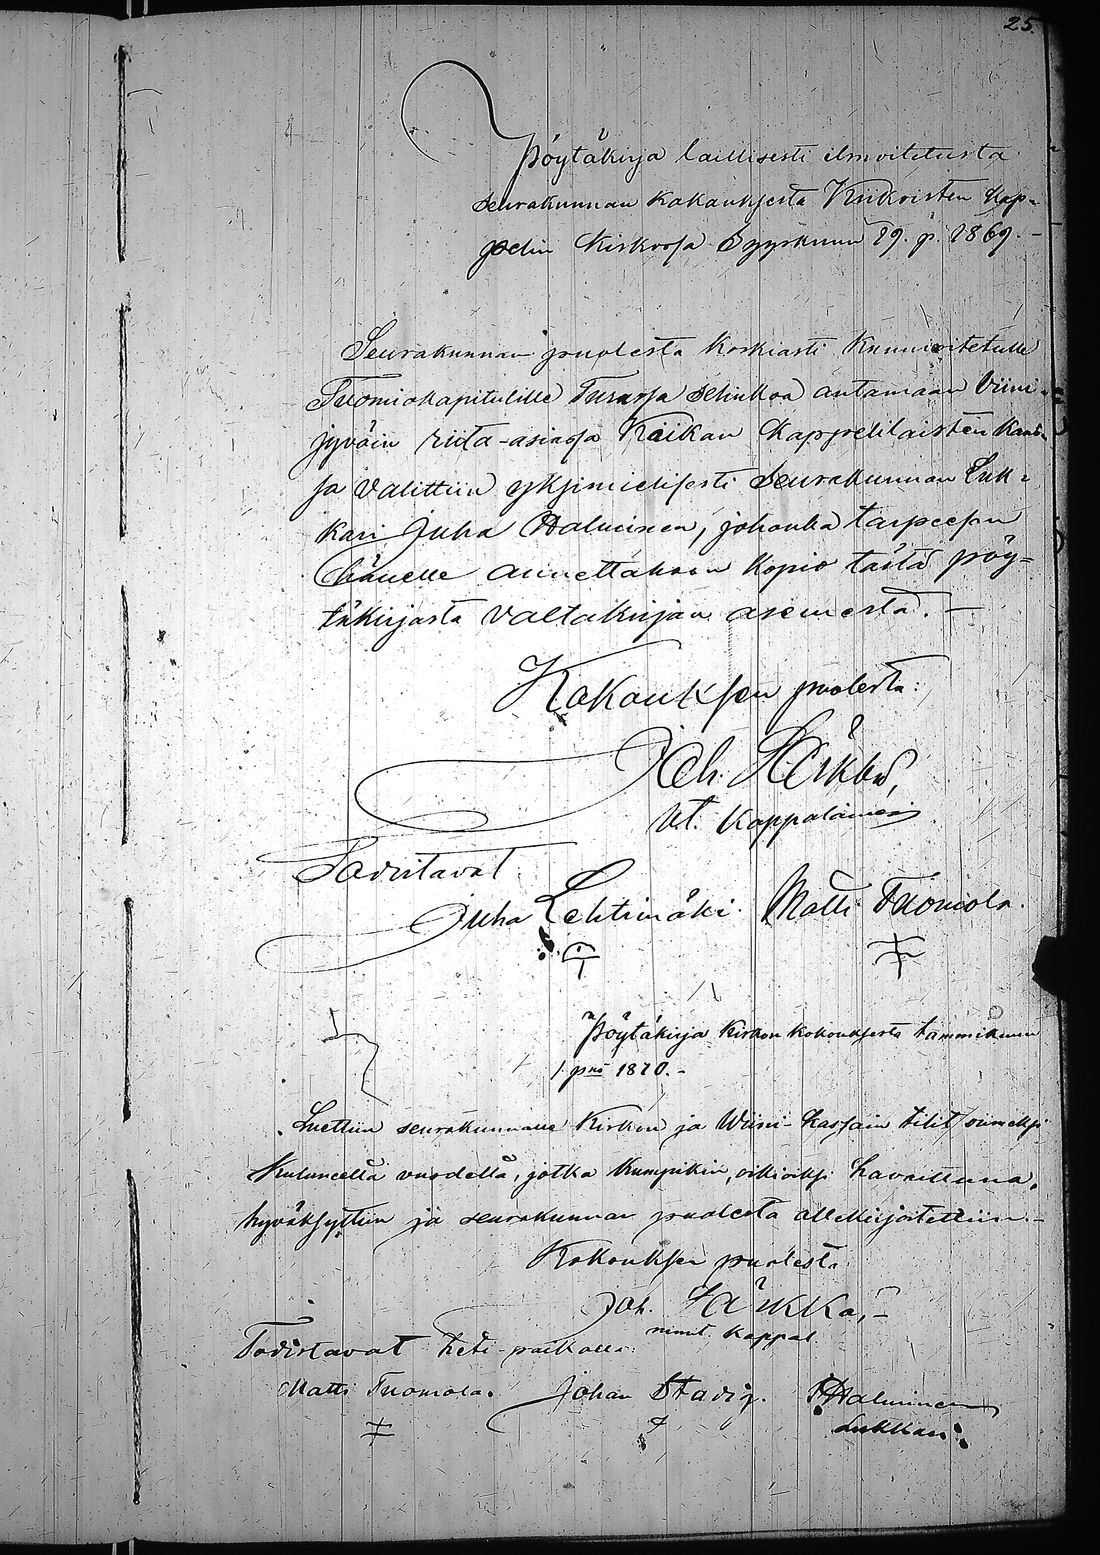 25.
Pöytäkirja laillisesti ilmoitetusta
seurakunnan kokouksesta Kiikoisten Kap-
pelin Kirkossa Syyskuun 19. p. 1869. -
Seurakunnan puolesta Korkiasti Kunnioitetulle
Tuomiokapitulille Turussa selinkoa antamaan Viini-
jyväin riita-asiassa Keikan Kappelilaisten kans-
sa valittiin yksimielisesti Seurakunnan Luk-
kari Juha Halminen, johonka tarpeesen
hänelle annettakoon Kopio tästä pöy-
täkirjasta valtakirjan asemesta. -
Kokouksen puolesta:
Joh. Särkkä,
vt. Kappalainen
Todistavat
Juha Lehtimäki. Matti Tuomola.
Pöytäkirja Kirkon kokouksesta tammikuun
1 pnä 1870. -
Luettiin seurakunnalle Kirkon ja Wiini-kassain tilit viimeksi
Kuluneelta vuodelta, jotka kumpikin, oikiaksi havaittuna,
hyväksyttiin ja seurakunnan puolesta allekirjoitettiin. -
Kokouksen puolesta
Joh. Särkkä,
nimit. Kappal.
Todistavat heti paikalla:
Matti Tuomola. Johan Stadig. Halminen
Lukkari.